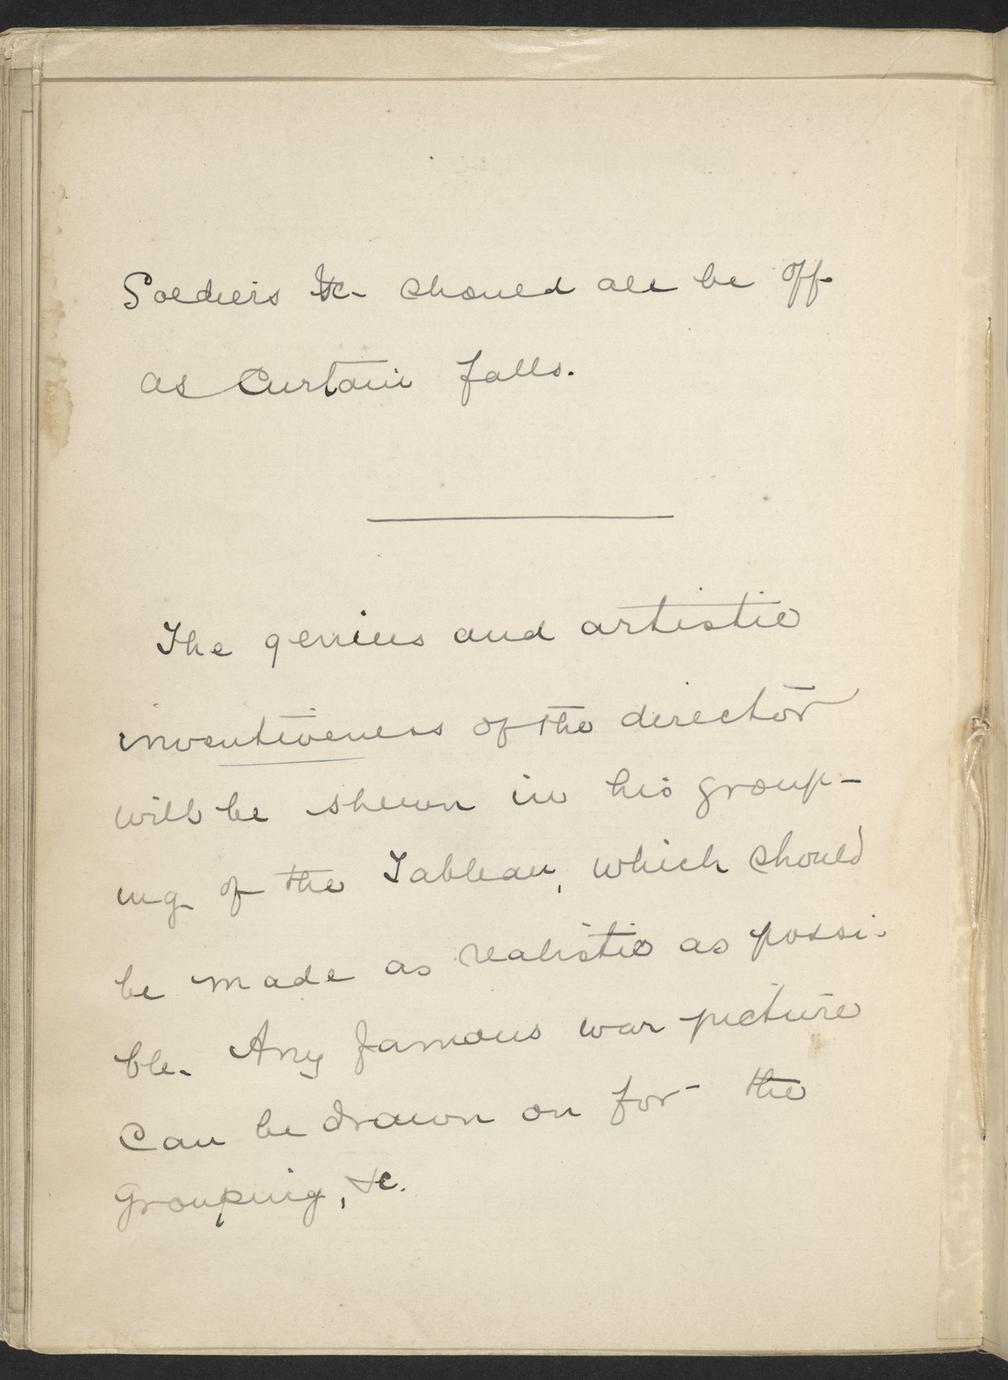 Soldiers &c- should all be off
as Curtain falls.
The genius and artistic
inventiveness of the director
will be shewn in his group-
ing of the Tableau, which should
be made as realistic as possi-
ble. Any famous war picture
Can be drawn on for the
Grouping, &c.